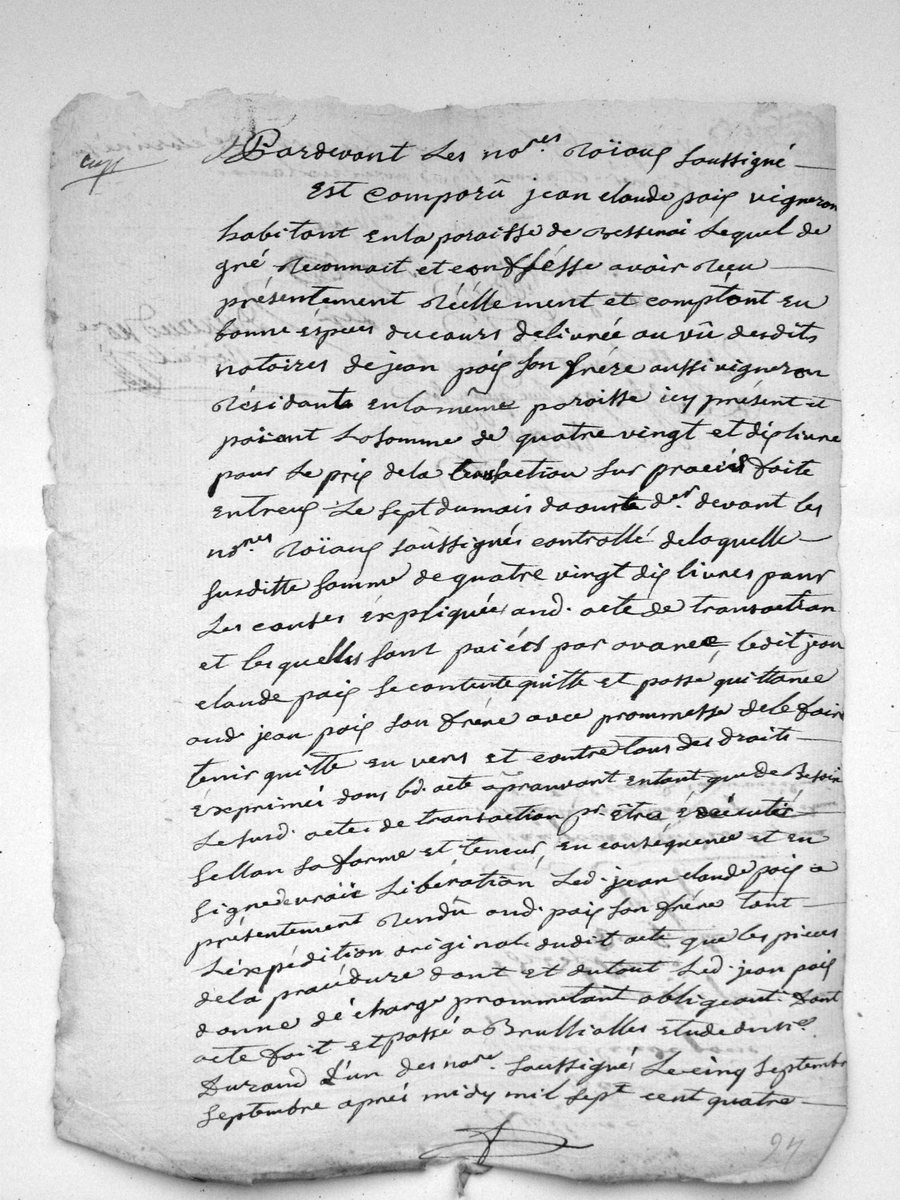 Pardevant Les no.res Roïaux Soussigné
Est Comparû jean claude paix vigneron
habitant en la paroisse de Bessenai Lequel de
gré Reconnait et confésse avoir Reçu
présentement Réellement et comptant en
bonne éspeces du cours delivrée au vû desdits
notaires de jean paix son frére aussi vigneron
Résidant en la même paroisse icy présent et
paiant La somme de quatre vingt et dix livre
pour Le prix de la transaction sur procés faite
entreux Le sept du mois daouste d.er devant les
no.res Roïaux soussignés controllé de laquelle
susditte somme de quatre vingt dix livres pour
Les causes éxpliquées aud. acte de transaction
et lesquelles sont paiées par avance, ledit jean
claude paix se contente quitte et passe quittance
aud. jean paix son frére avec prommesse de le faire
tenir quitte en vers et contre tous des droits
éxprimés dans led. acte aprouvant entant que de Besoin
Le susd. actes de transaction p.r être éxécutés
sellon sa forme et teneur, en conséquence et en
signe vraïe Libération Led. jean claude paix a
présentement Rendû aud. paix son frére tant
L'éxpédition originale dudit acte que les pieces
de la procédure dont et du tout Led. jean paix
donne décharge promettant obligeant. Dont
acte fait et passé a Brullialles etude du M.e
Durand L'un des no.res soussignés Le cinq Septembre
septembre aprés midy mil sept cent quatre
94